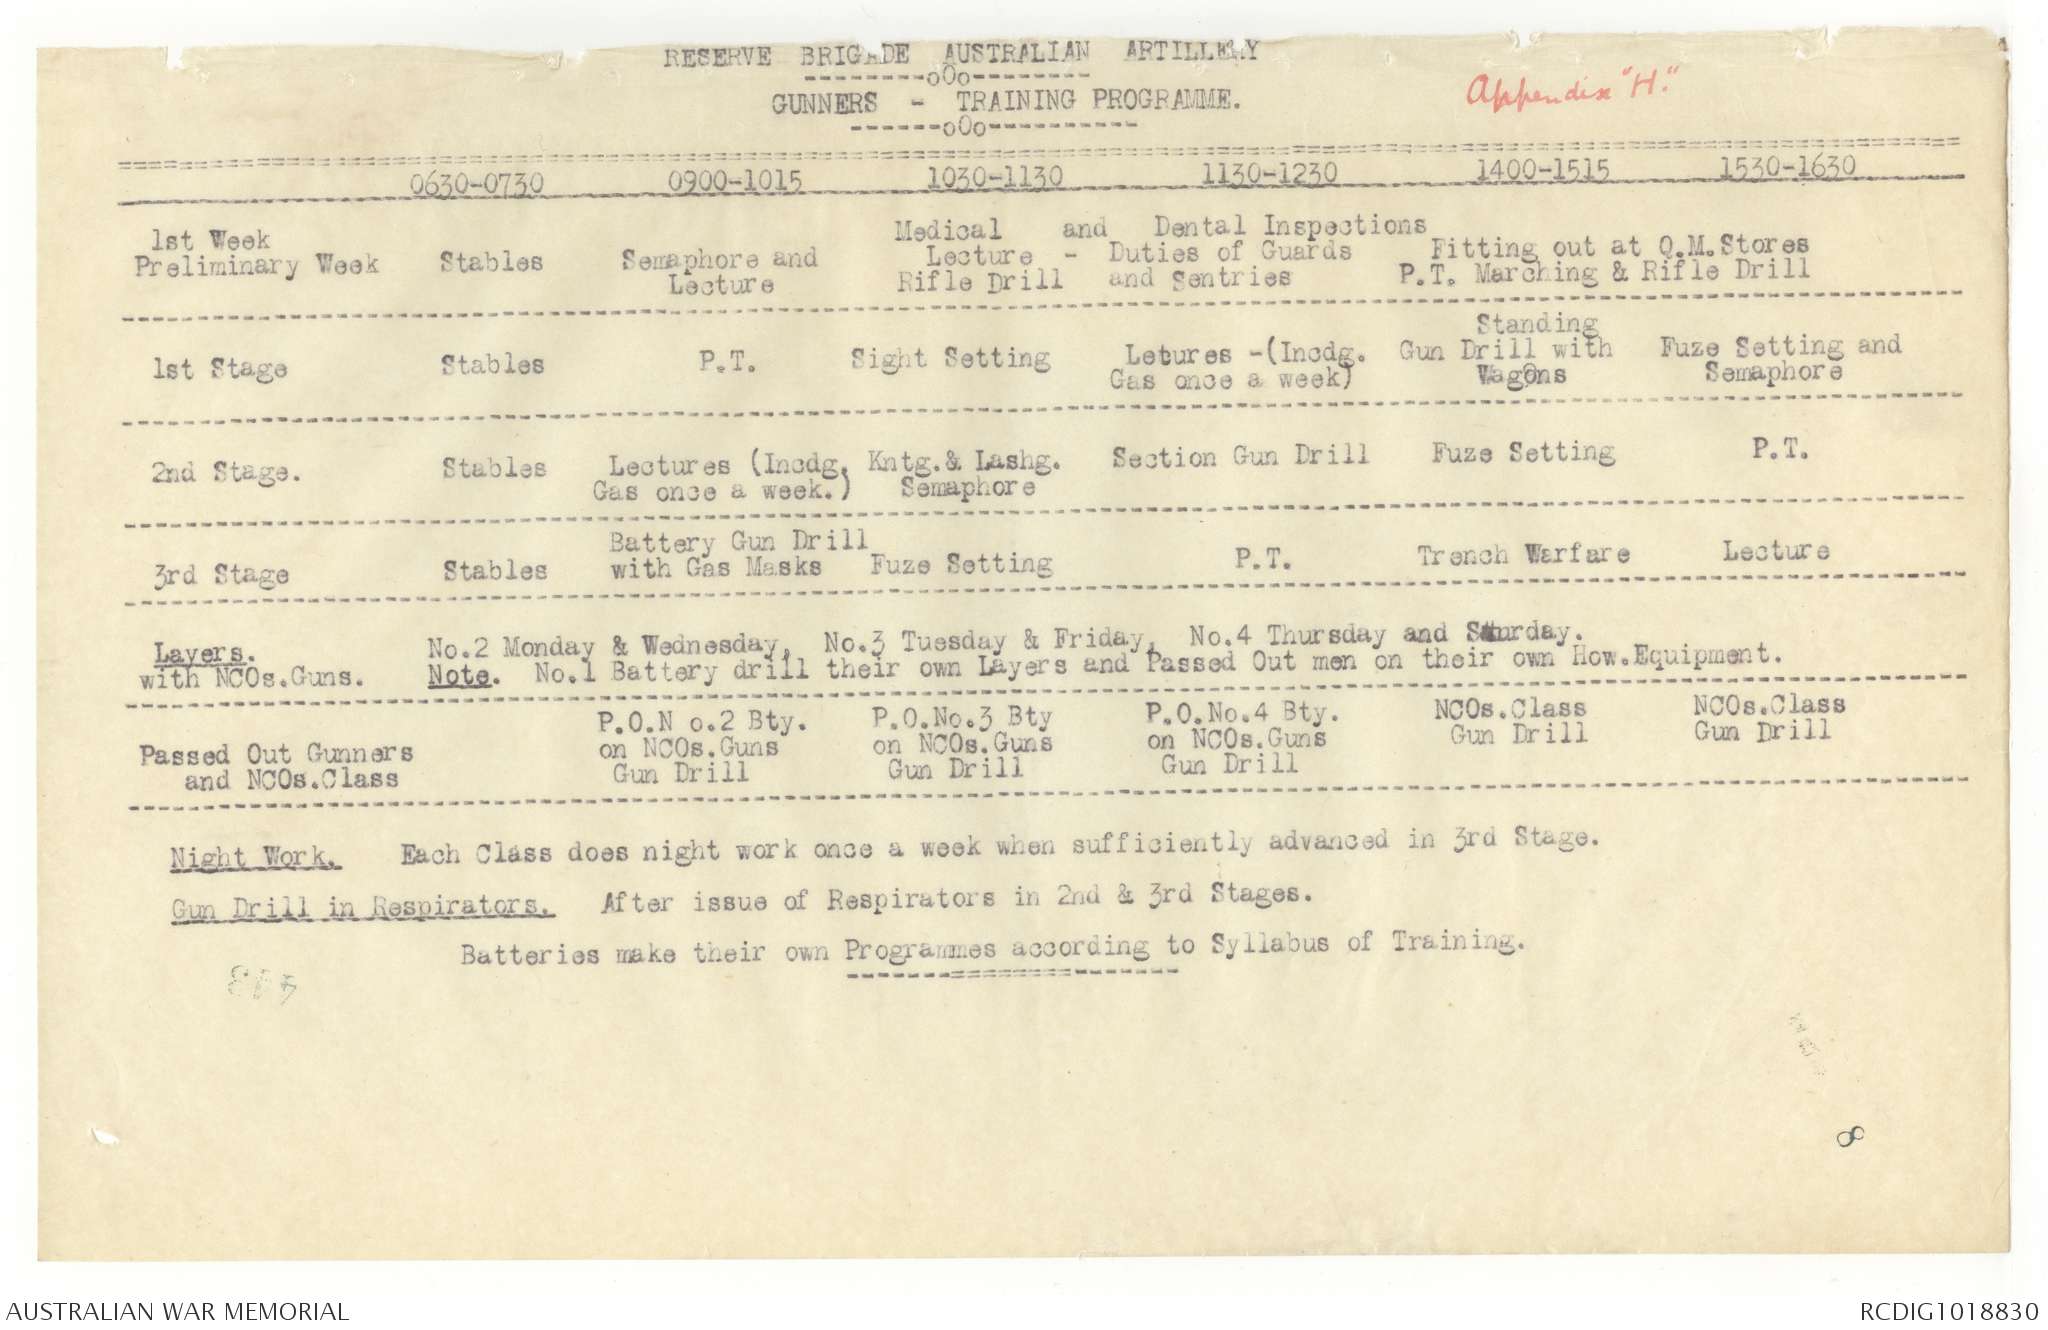 RESERVE BRIGADE AUSTRALIAN ARTILLERY
--------oOo--------
Appendix "H."
GUNNERS - TRAINING PROGRAMME.
------oOo-----------
0630-0730 0900-1015 1030-1130 1130-1230 1400-1515 1530-1630
1st Week Medical and Dental Inspections
Preliminary Week Stables Semaphore and Lecture - Duties of Guards Fitting out at Q.M.Stores
Lecture Rifle Drill and Sentries P.T. Marching & Rifle Drill
Standing
1st Stage Stables P.T. Sight Setting Letures -(Incdg. Gun Drill with Fuze Setting and
Gas once a week) Wagons Semaphore
2nd Stage. Stables Lectures (Incdg. Kntg.& Lashg. Section Gun Drill Fuze Setting P.T.
Gas once a week.) Semaphore
Battery Gun Drill
3rd Stage Stables with Gas Masks Fuze Setting P.T. Trench Warfare Lecture
Layers. No.2 Monday & Wednesday, No.3 Tuesday & Friday, No.4 Thursday and Saturday.
with NCOs.Guns. Note. No.1 Battery drill their own Layers and Passed Out men on their own How.Equipment.
P.O.N o.2 Bty. P.O.No.3 Bty P.O.No.4 Bty. NCOs.Class NCOs.Class
Passed Out Gunners on NCOs.Guns on NCOs.Guns on NCOs.Guns Gun Drill Gun Drill
and NCOs.Class Gun Drill Gun Drill Gun Drill
Night Work. Each Class does night work once a week when sufficiently advanced in 3rd Stage.
Gun Drill in Respirators. After issue of Respirators in 2nd & 3rd Stages.
Batteries make their own Programmes according to Syllabus of Training.
8
AUSTRALIAN WAR MEMORIAL RCDIG1018830